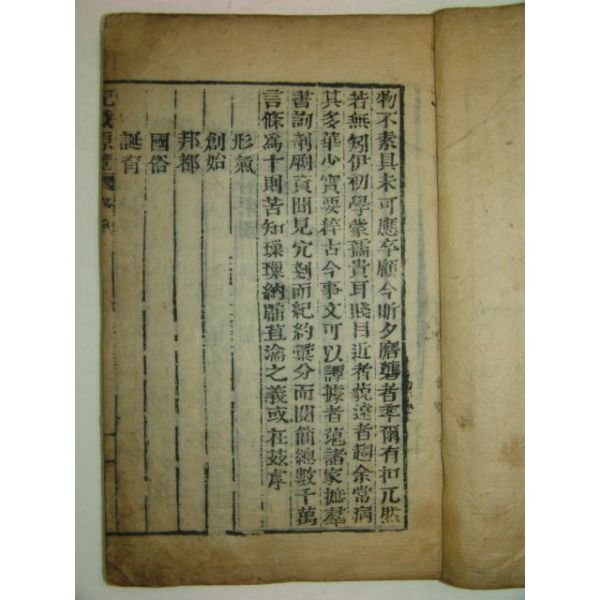 物不素具未可應卒顧今昕夕磨礱者率爾有扣兀然
若無矧伊初學蒙孺貴耳賤目近者藐遠者趨余常病
其多華少實要稡古今事文可以譚據者蒐諸家摭羣
書詢荊關賁聞見宂剗而紀約彙分而閱簡總數千萬
言條爲十則苦知璅璅納牖苴瀹之義或在玆序
形氣
創始
邦都
國俗
誕育